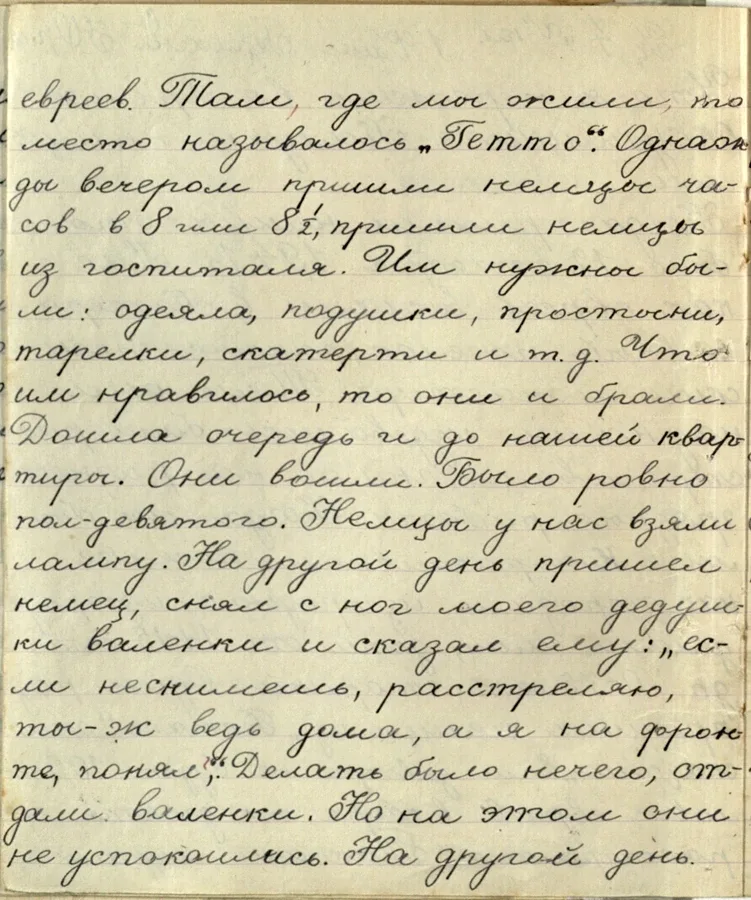 евреев. Там, где мы жили, то
место называлось „Гетто“. Однаж
ды вечером пришли немцы ча-
сов в 8 или 8 1/2, пришли немцы
из госпиталя. Им нужны бы-
ли: одеяла, подушки, простыни,
тарелки, скатерти и т.д. Что
им нравилось, то они и брали.
Дошла очередь и до нашей квар-
тиры. Они вошли. Было ровно
пол-девятого. Немцы у нас взяли
лампу. На другой день пришел
немец, снял с ног моего дедуш-
ки валенки и сказал ему: „ес-
ли неснимешь, расстреляю,
ты-ж ведь дома, а я на фрон-
те, понял“. Делать было нечего, от-
дали валенки. Но на этом они
не успокоились. На другой день.